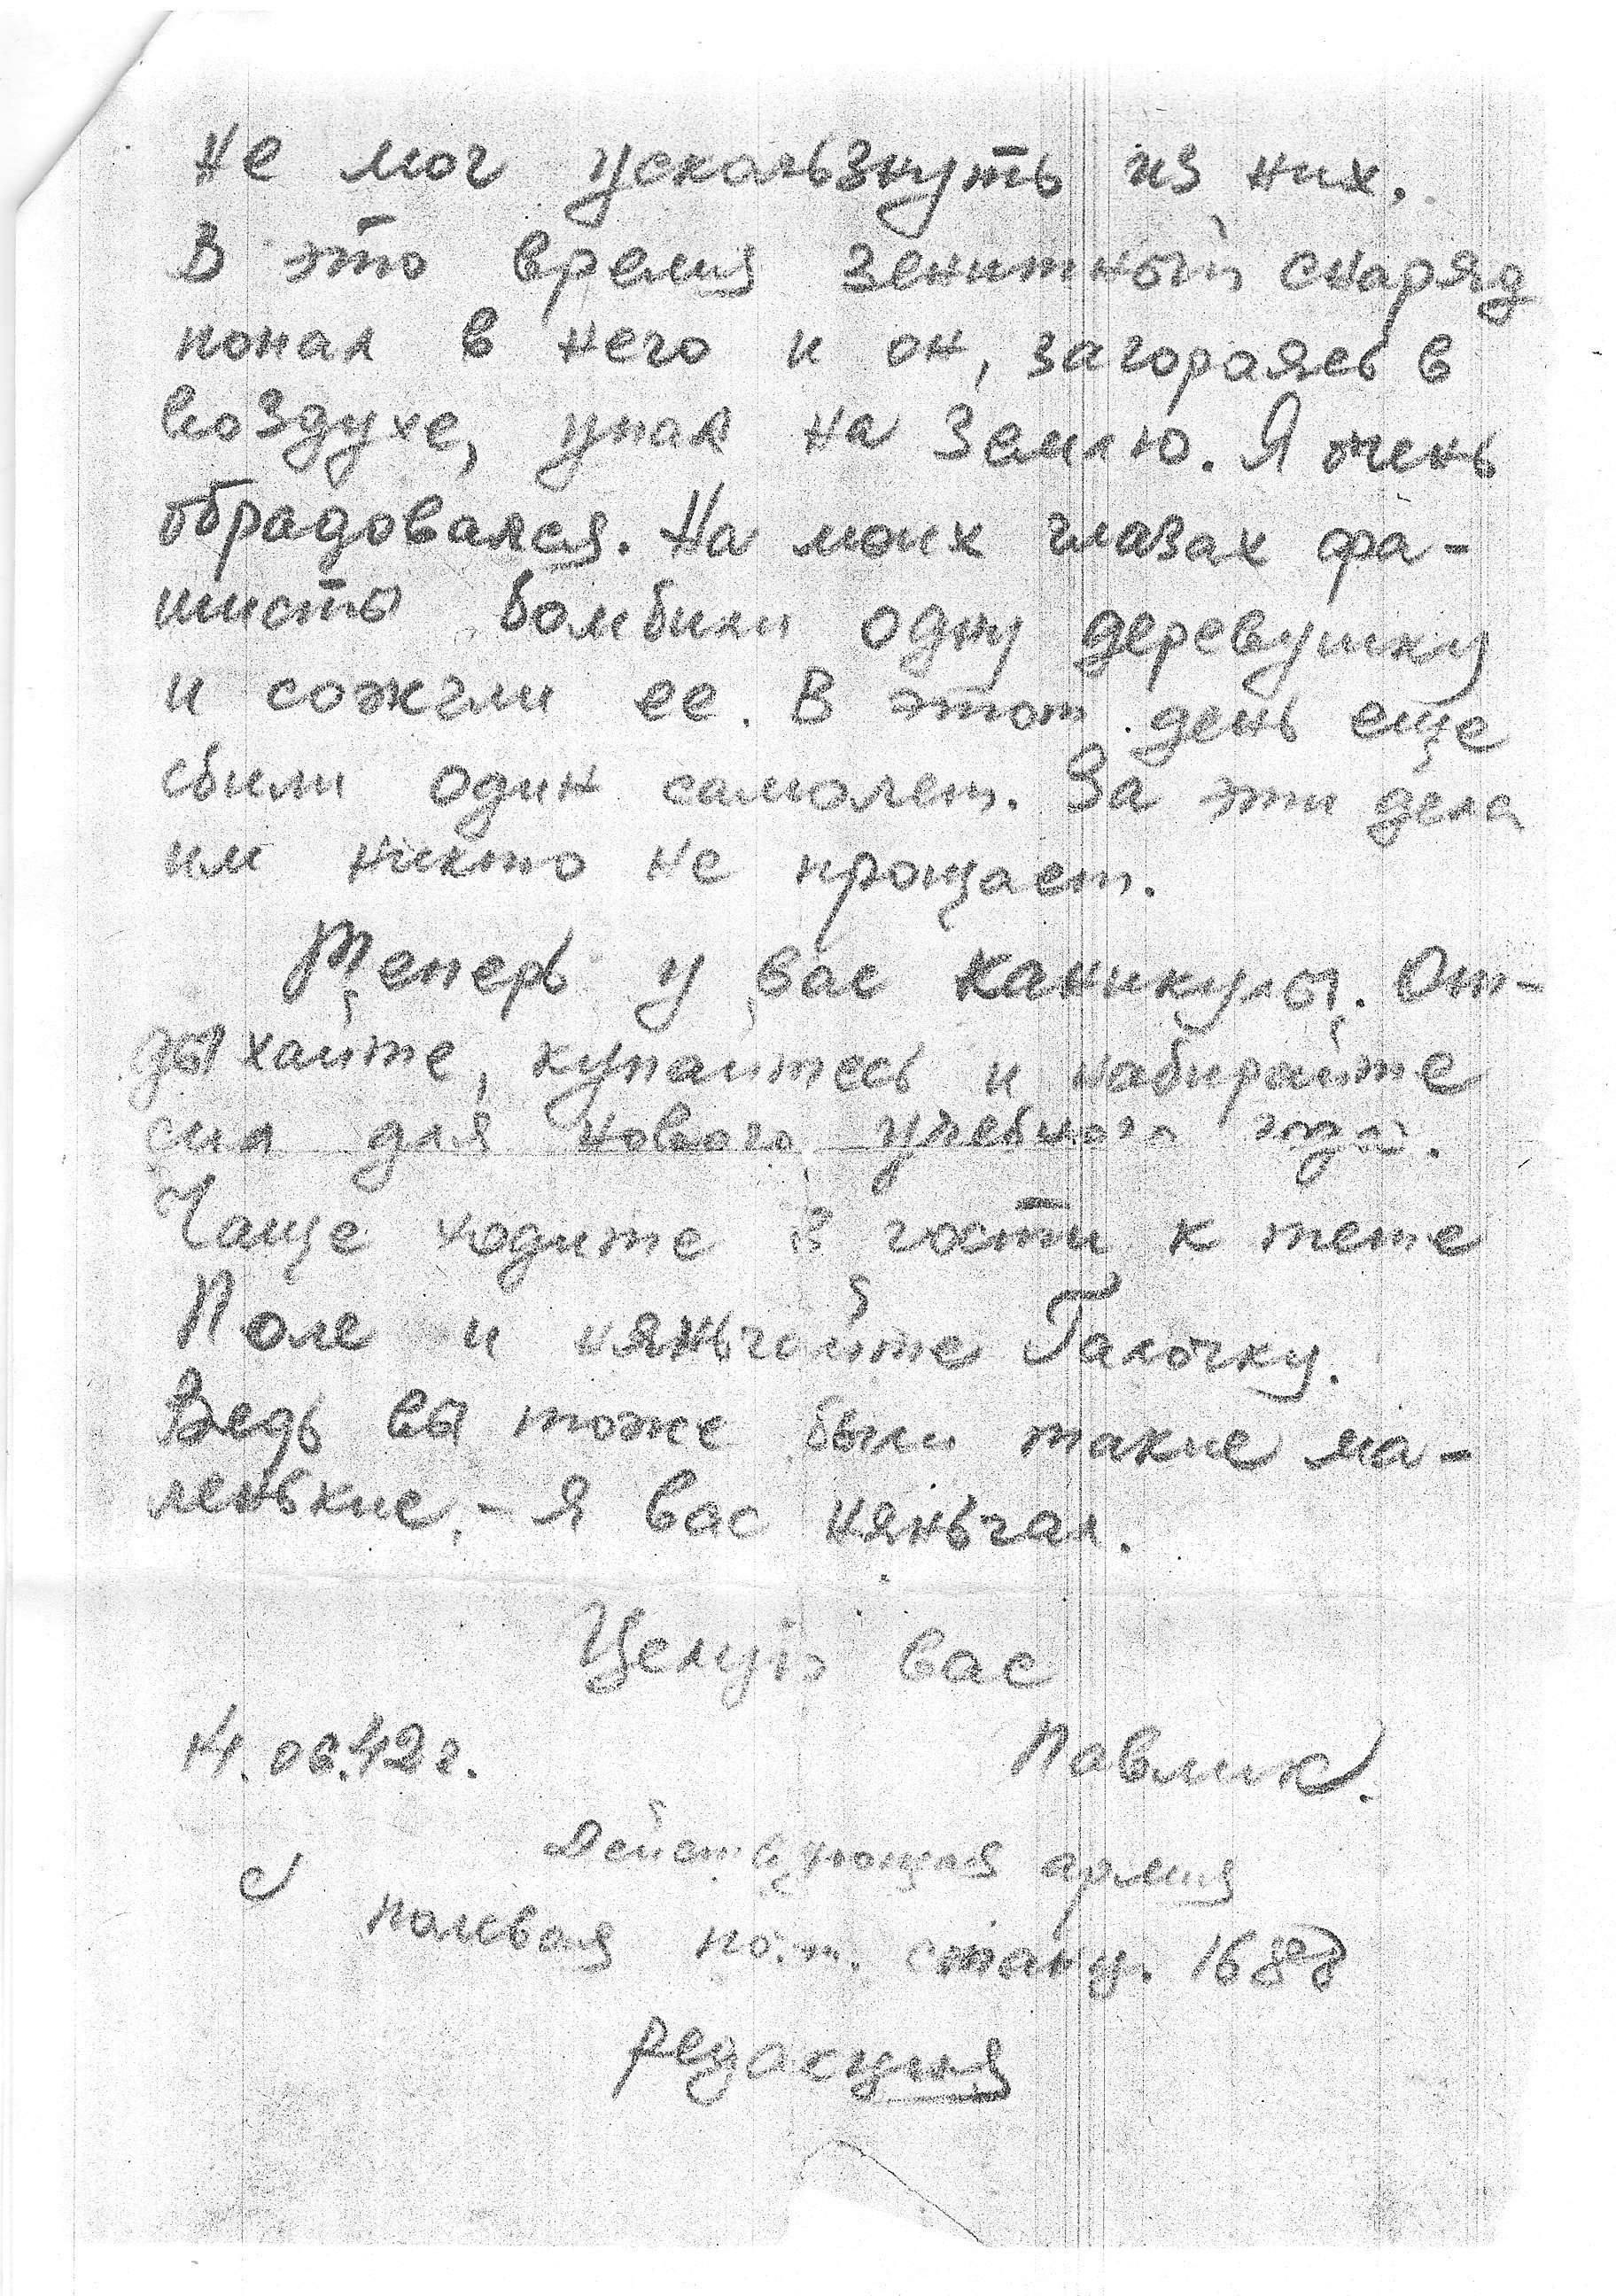 Не мог ускользнуть из них.
В это время зенитный снаряд
попал в него и он, загораясь в
воздухе, упал на землю. Я очень
обрадовался. На моих глазах фа-
шисты бомбили одну деревушку
и сожгли ее. В этот день еще
сбили один самолет. За эти дела
им никто не прощает.
Теперь у вас каникулы. От-
дыхайте, купайтесь и набирайте
сил для нового учебного года.
Чаще ходите в гости к тете
Поле и няньчайте Галочку.
Ведь вы тоже были такие ма-
ленькие, - я вас няньчал.
Целую вас
14.06.42г.
Павлик.
Действующая армия
полевая поч. станц. 1688
редакция